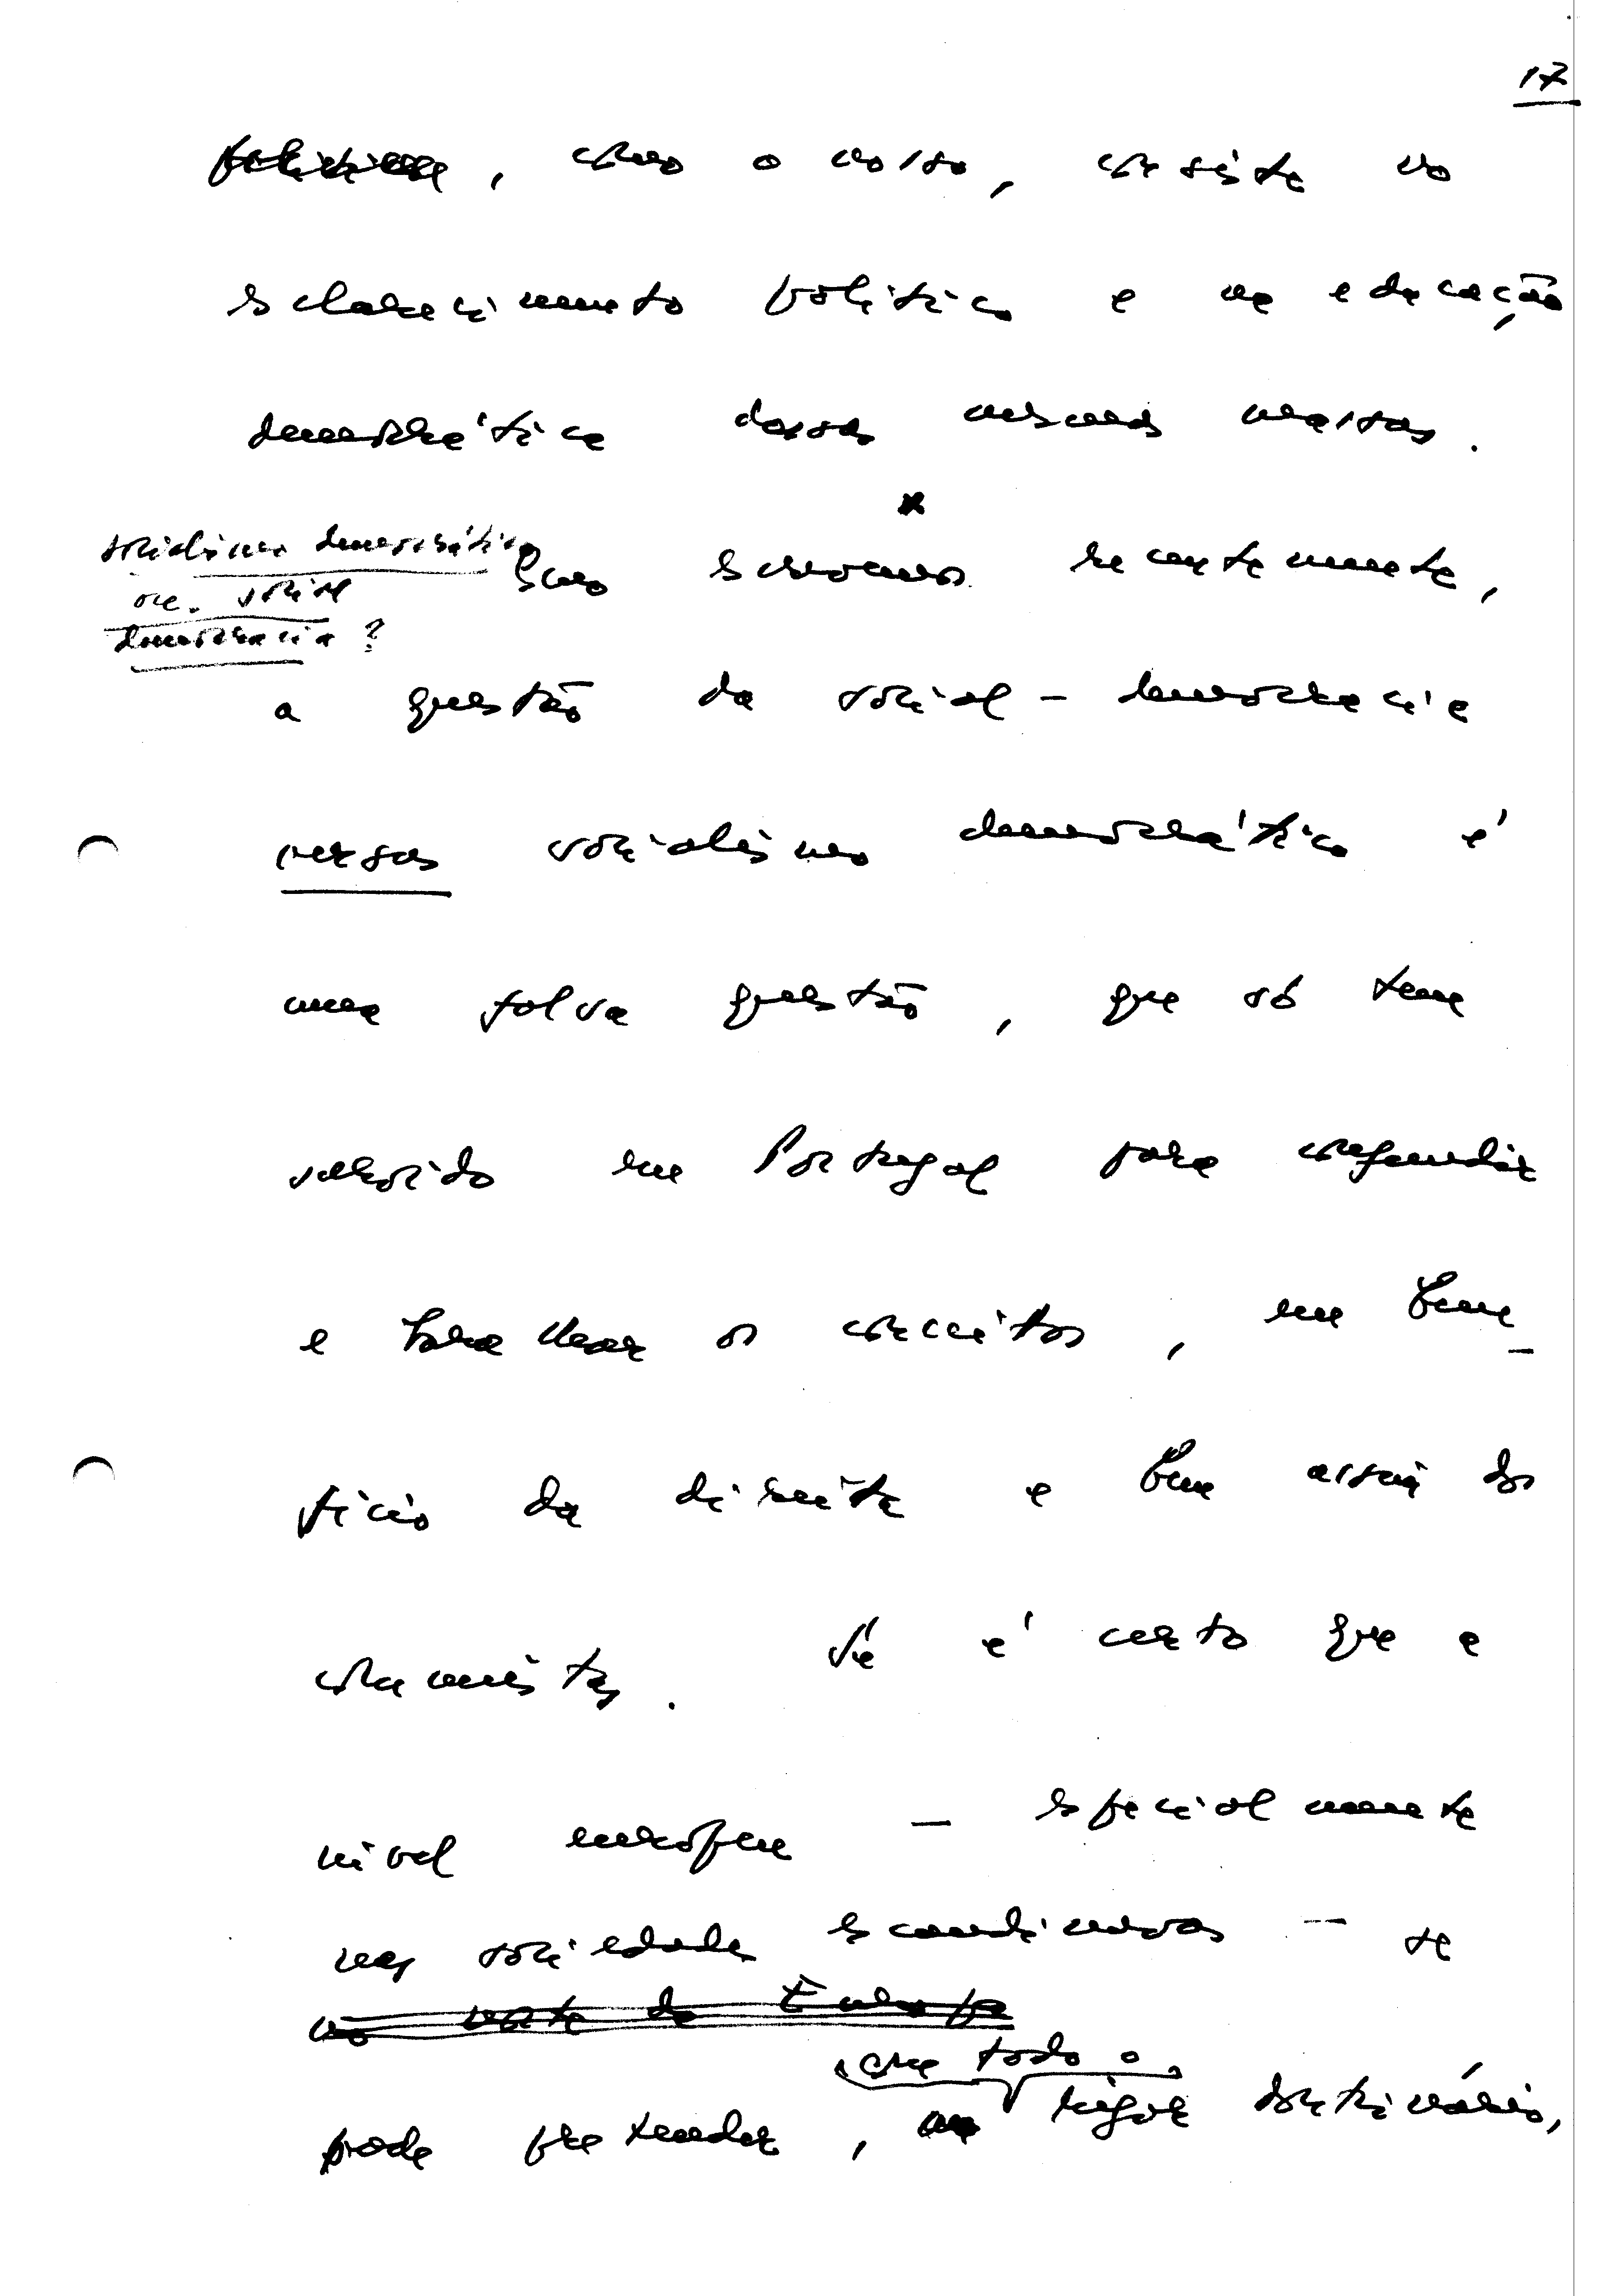 17
, como o nosso, consiste no
esclarecimento político e na educação
democrática dessas mesmas massas.
x
socialismo democrático
ou social
democracia?
Como escrevemos recentemente,
a questão da social-democracia
versus socialismo democrático é
uma falsa questão, que só tem
servido em Portugal para confundir
e baralhar os conceitos, em bene-
fício da direita e bem assim dos
comunistas. Se é certo que a
nível europeu — especialmente
nas sociedades escandinavas — se
no norte da Europa
com todo o
pode pretender, rigor doutrinário,